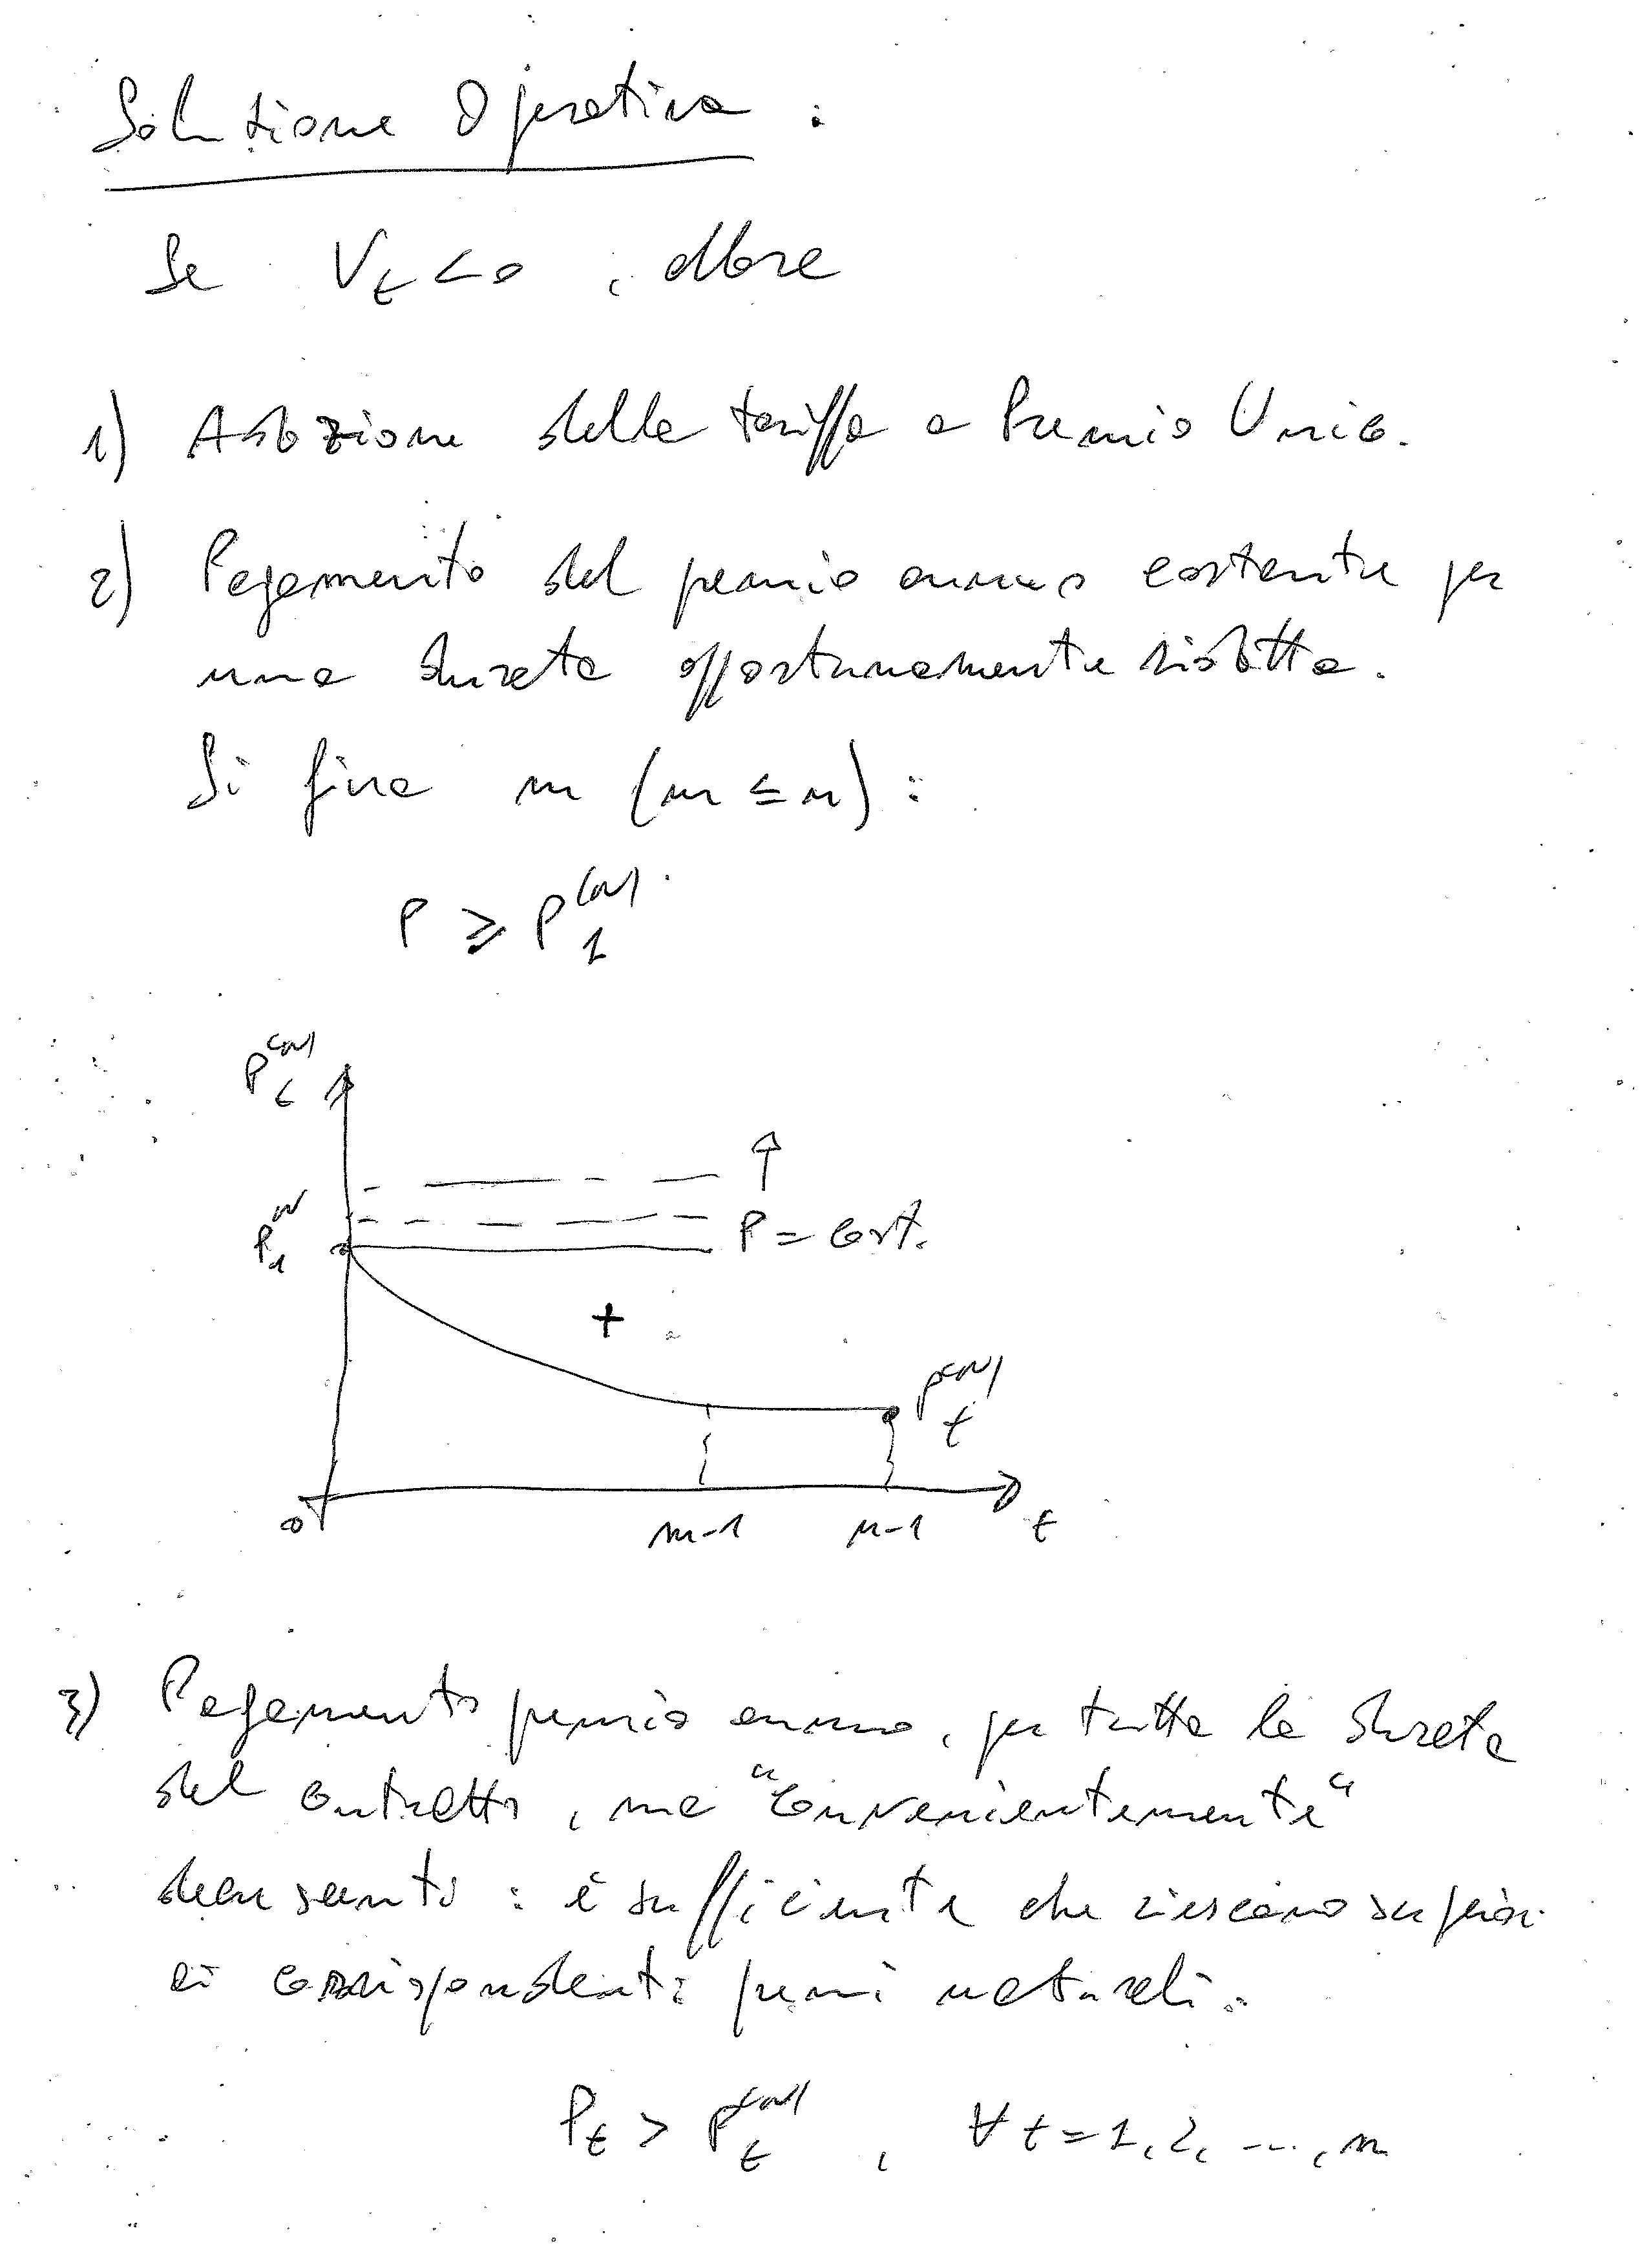 Soluzione Operativa :
Se V_t < 0 , allora
1) Adozione della tariffa a Premio Unico.
2) Pagamento del premio annuo costante per
una durata opportunamente ridotta.
Si fissa m (m ≤ n) :
P ≥ P_1^(N)
P_t^(N)
P_1^N
P = cost.
+
P_t^(N)
0
m-1
n-1
t
3) Pagamento premio annuo, per tutta la durata
del contratto, ma "convenientemente"
decrescenti : è sufficiente che riescano superiori
ai corrispondenti premi naturali :
P_t > P_t^(N) , ∀ t = 1, 2, ..., n